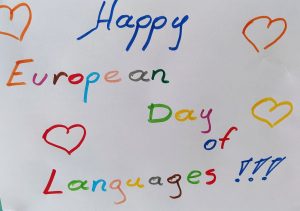 Happy
European
Day
of
Languages !!!